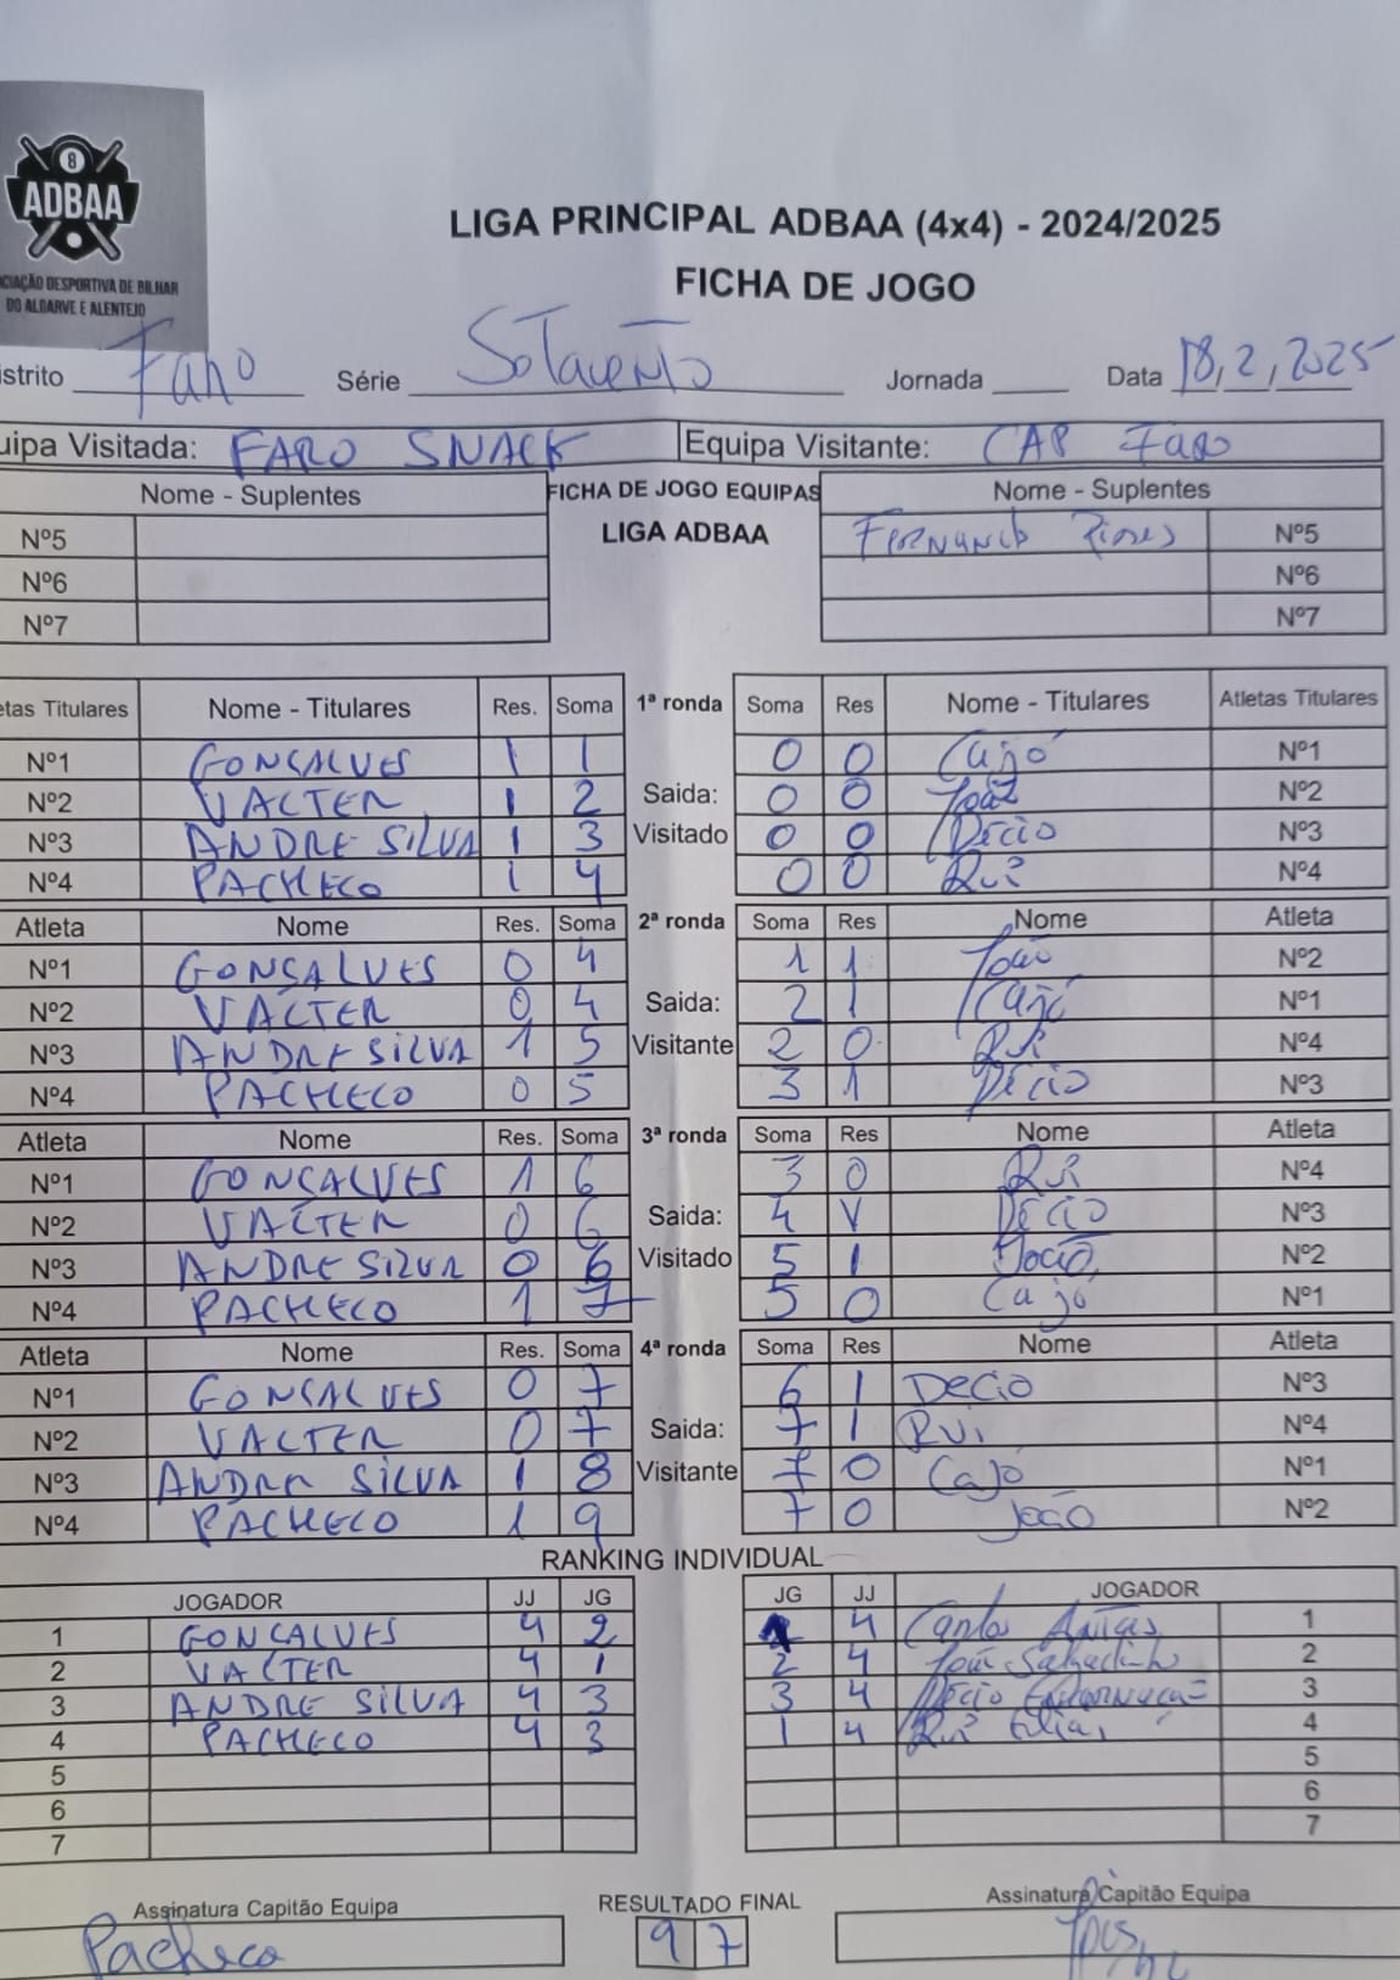 8
ADBAA
CIAÇÃO DESPORTIVA DE BILHAR
DO ALGARVE E ALENTEJO
LIGA PRINCIPAL ADBAA (4x4) - 2024/2025
FICHA DE JOGO
istrito Faro Série Sotavento Jornada Data 18,2,2025
uipa Visitada: FARO SNACK Equipa Visitante: CAP FARO
Nome - Suplentes FICHA DE JOGO EQUIPAS Nome - Suplentes
Nº5 LIGA ADBAA Fernando Nº5
Nº6 Nº6
Nº7 Nº7
etas Titulares Nome - Titulares Res. Soma 1ª ronda Soma Res Nome - Titulares Atletas Titulares
Nº1 GONSALVES 1 1 0 0 Cajó Nº1
Nº2 VALTER 1 2 Saida: 0 0 João Nº2
Nº3 ANDRE SILVA 1 3 Visitado 0 0 Décio Nº3
Nº4 PACHECO 1 4 0 0 Rui Nº4
Atleta Nome Res. Soma 2ª ronda Soma Res Nome Atleta
Nº1 GONSALVES 0 4 1 1 João Nº2
Nº2 VALTER 0 4 Saida: 2 1 Cajó Nº1
Nº3 ANDRE SILVA 1 5 Visitante 2 0 Rui Nº4
Nº4 PACHECO 0 5 3 1 Décio Nº3
Atleta Nome Res. Soma 3ª ronda Soma Res Nome Atleta
Nº1 GONSALVES 1 6 3 0 Rui Nº4
Nº2 VALTER 0 6 Saida: 4 1 Décio Nº3
Nº3 ANDRE SILVA 0 6 Visitado 5 1 João Nº2
Nº4 PACHECO 1 7 5 0 Cajó Nº1
Atleta Nome Res. Soma 4ª ronda Soma Res Nome Atleta
Nº1 GONSALVES 0 7 6 1 Decio Nº3
Nº2 VALTER 0 7 Saida: 7 1 Rui Nº4
Nº3 ANDRE SILVA 1 8 Visitante 7 0 Cajó Nº1
Nº4 PACHECO 1 9 7 0 João Nº2
RANKING INDIVIDUAL
JOGADOR JJ JG JG JJ JOGADOR
1 GONCALVES 4 2 1 4 Carlos 1
2 VALTER 4 1 2 4 João Salgadinho 2
3 ANDRE SILVA 4 3 3 4 Décio Encarnação 3
4 PACHECO 4 3 1 4 Rui Elias 4
5 5
6 6
7 7
Assinatura Capitão Equipa RESULTADO FINAL Assinatura Capitão Equipa
Pacheco 9 7